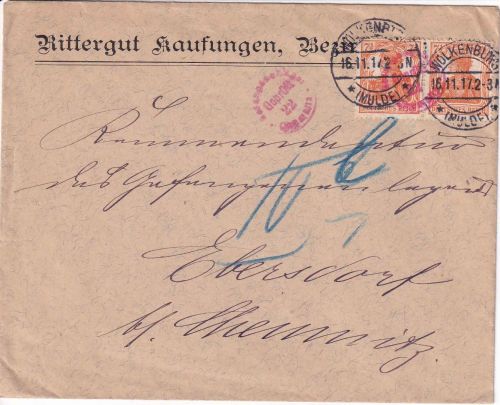 Rittergut Kaufungen, Bezir
WOLKENBURG
16.11.17.2-3N
* (MULDE) *
WOLKENBURG
16.11.17.2-3N
* (MULDE) *
Geprüft
22
Kommandantur
des Gefangenenlagers
Ebersdorf
b/ Chemnitz.